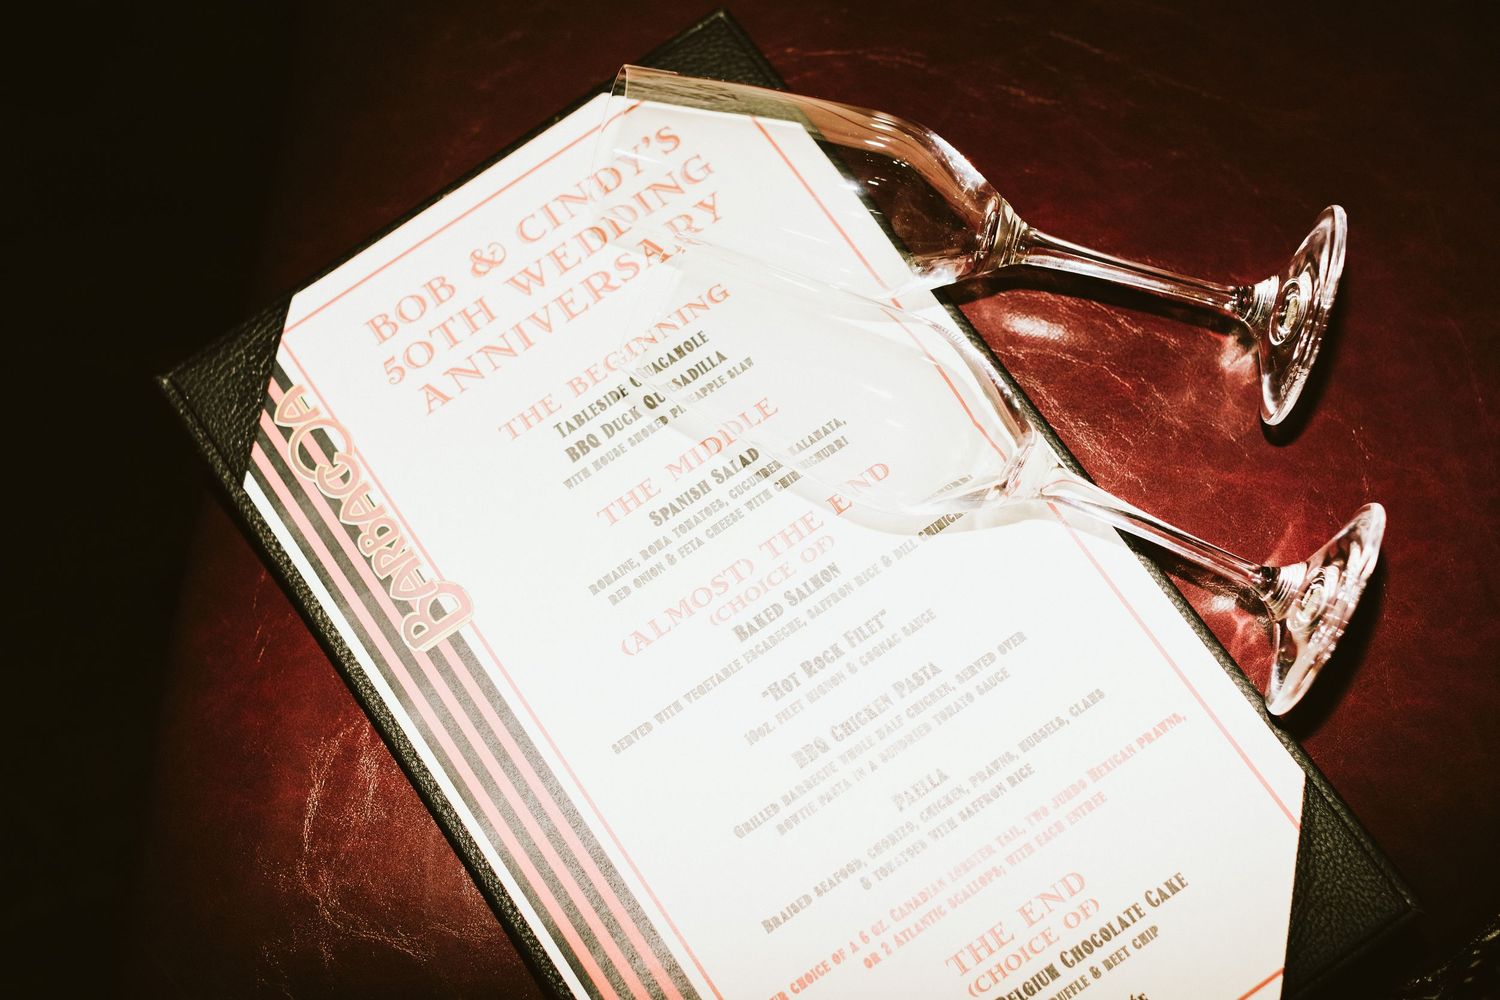 BOB & CINDY'S
50TH WEDDING
ANNIVERSARY
THE BEGINNING
TABLESIDE GUAGAMOLE
BBQ DUCK QUESADILLA
WITH HOUSE SMOKED PINEAPPLE SLAW
THE MIDDLE
SPANISH SALAD
ROMAINE, ROMA TOMATOES, CUCUMBER, KALAMATA,
RED ONION & FETA CHEESE WITH CHIMICHURRI
(ALMOST) THE END
(CHOICE OF)
BAKED SALMON
SERVED WITH VEGETABLE ESCABECHE, SAFFRON RICE & DILL CHIMICHURRI
"HOT ROCK FILET"
10OZ. FILET MIGNON & COGNAC SAUCE
BBQ CHICKEN PASTA
GRILLED BARBECUE WHOLE HALF CHICKEN, SERVED OVER
BOWTIE PASTA IN A SUNDRIED TOMATO SAUCE
PAELLA
BRAISED SEAFOOD, CHORIZO, CHICKEN, PRAWNS, MUSSELS, CLAMS
& TOMATOES WITH SAFFRON RICE
CHOICE OF A 6 OZ. CANADIAN LOBSTER TAIL, TWO JUMBO MEXICAN PRAWNS,
OR 2 ATLANTIC SCALLOPS; WITH EACH ENTREE
THE END
(CHOICE OF)
BELGIUM CHOCOLATE CAKE
& BEET CHIP
BARBACOA